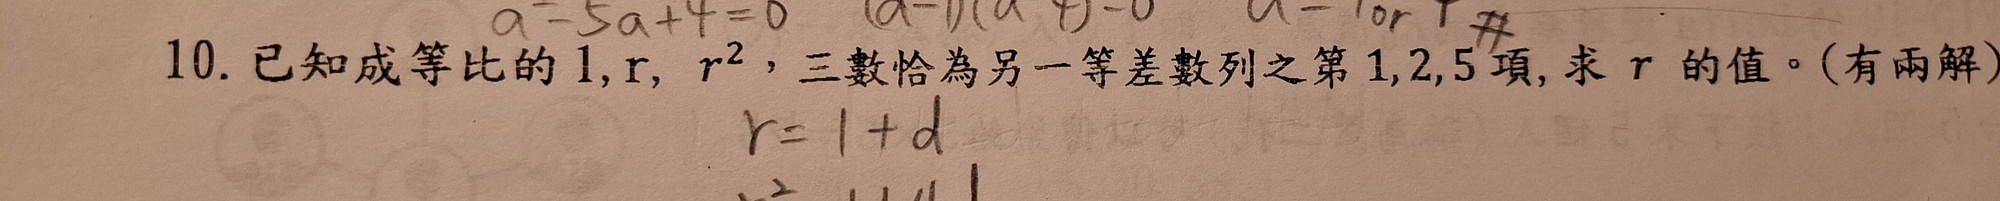 a²-5a+4=0 (a-1)(a-4)=0 a=1or4#
10. 已知成等比的 1, r, r²，三數恰為另一等差數列之第 1, 2, 5 項, 求 r 的值。(有兩解)
r=1+d
r²=1+4d